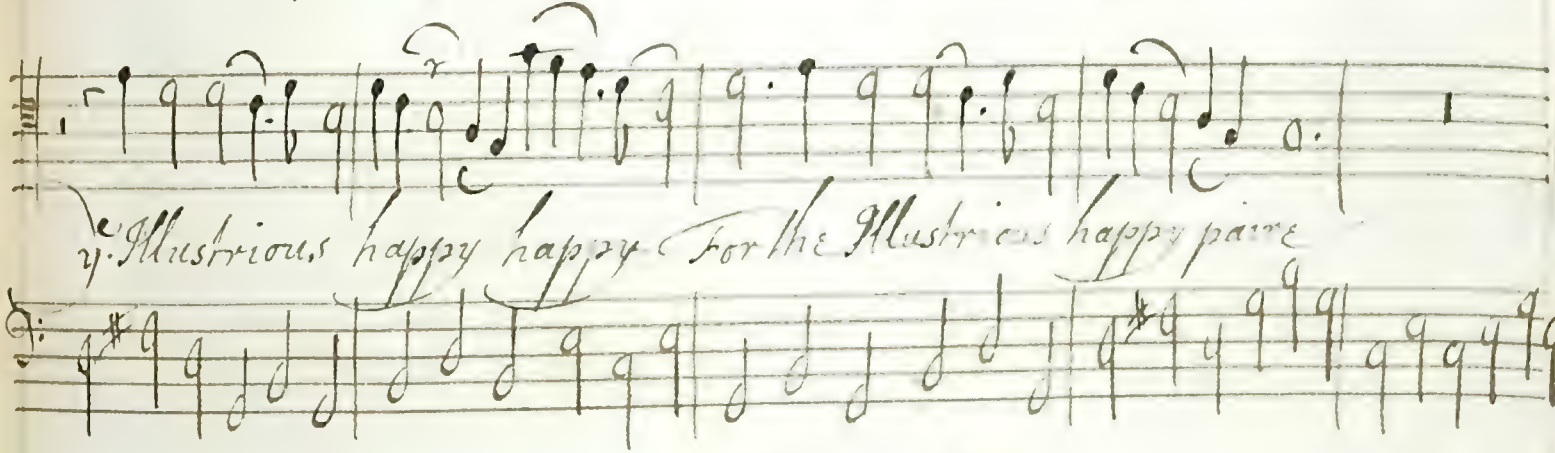 yᵉ Illustrious happy happy For the Illustrious happy paire